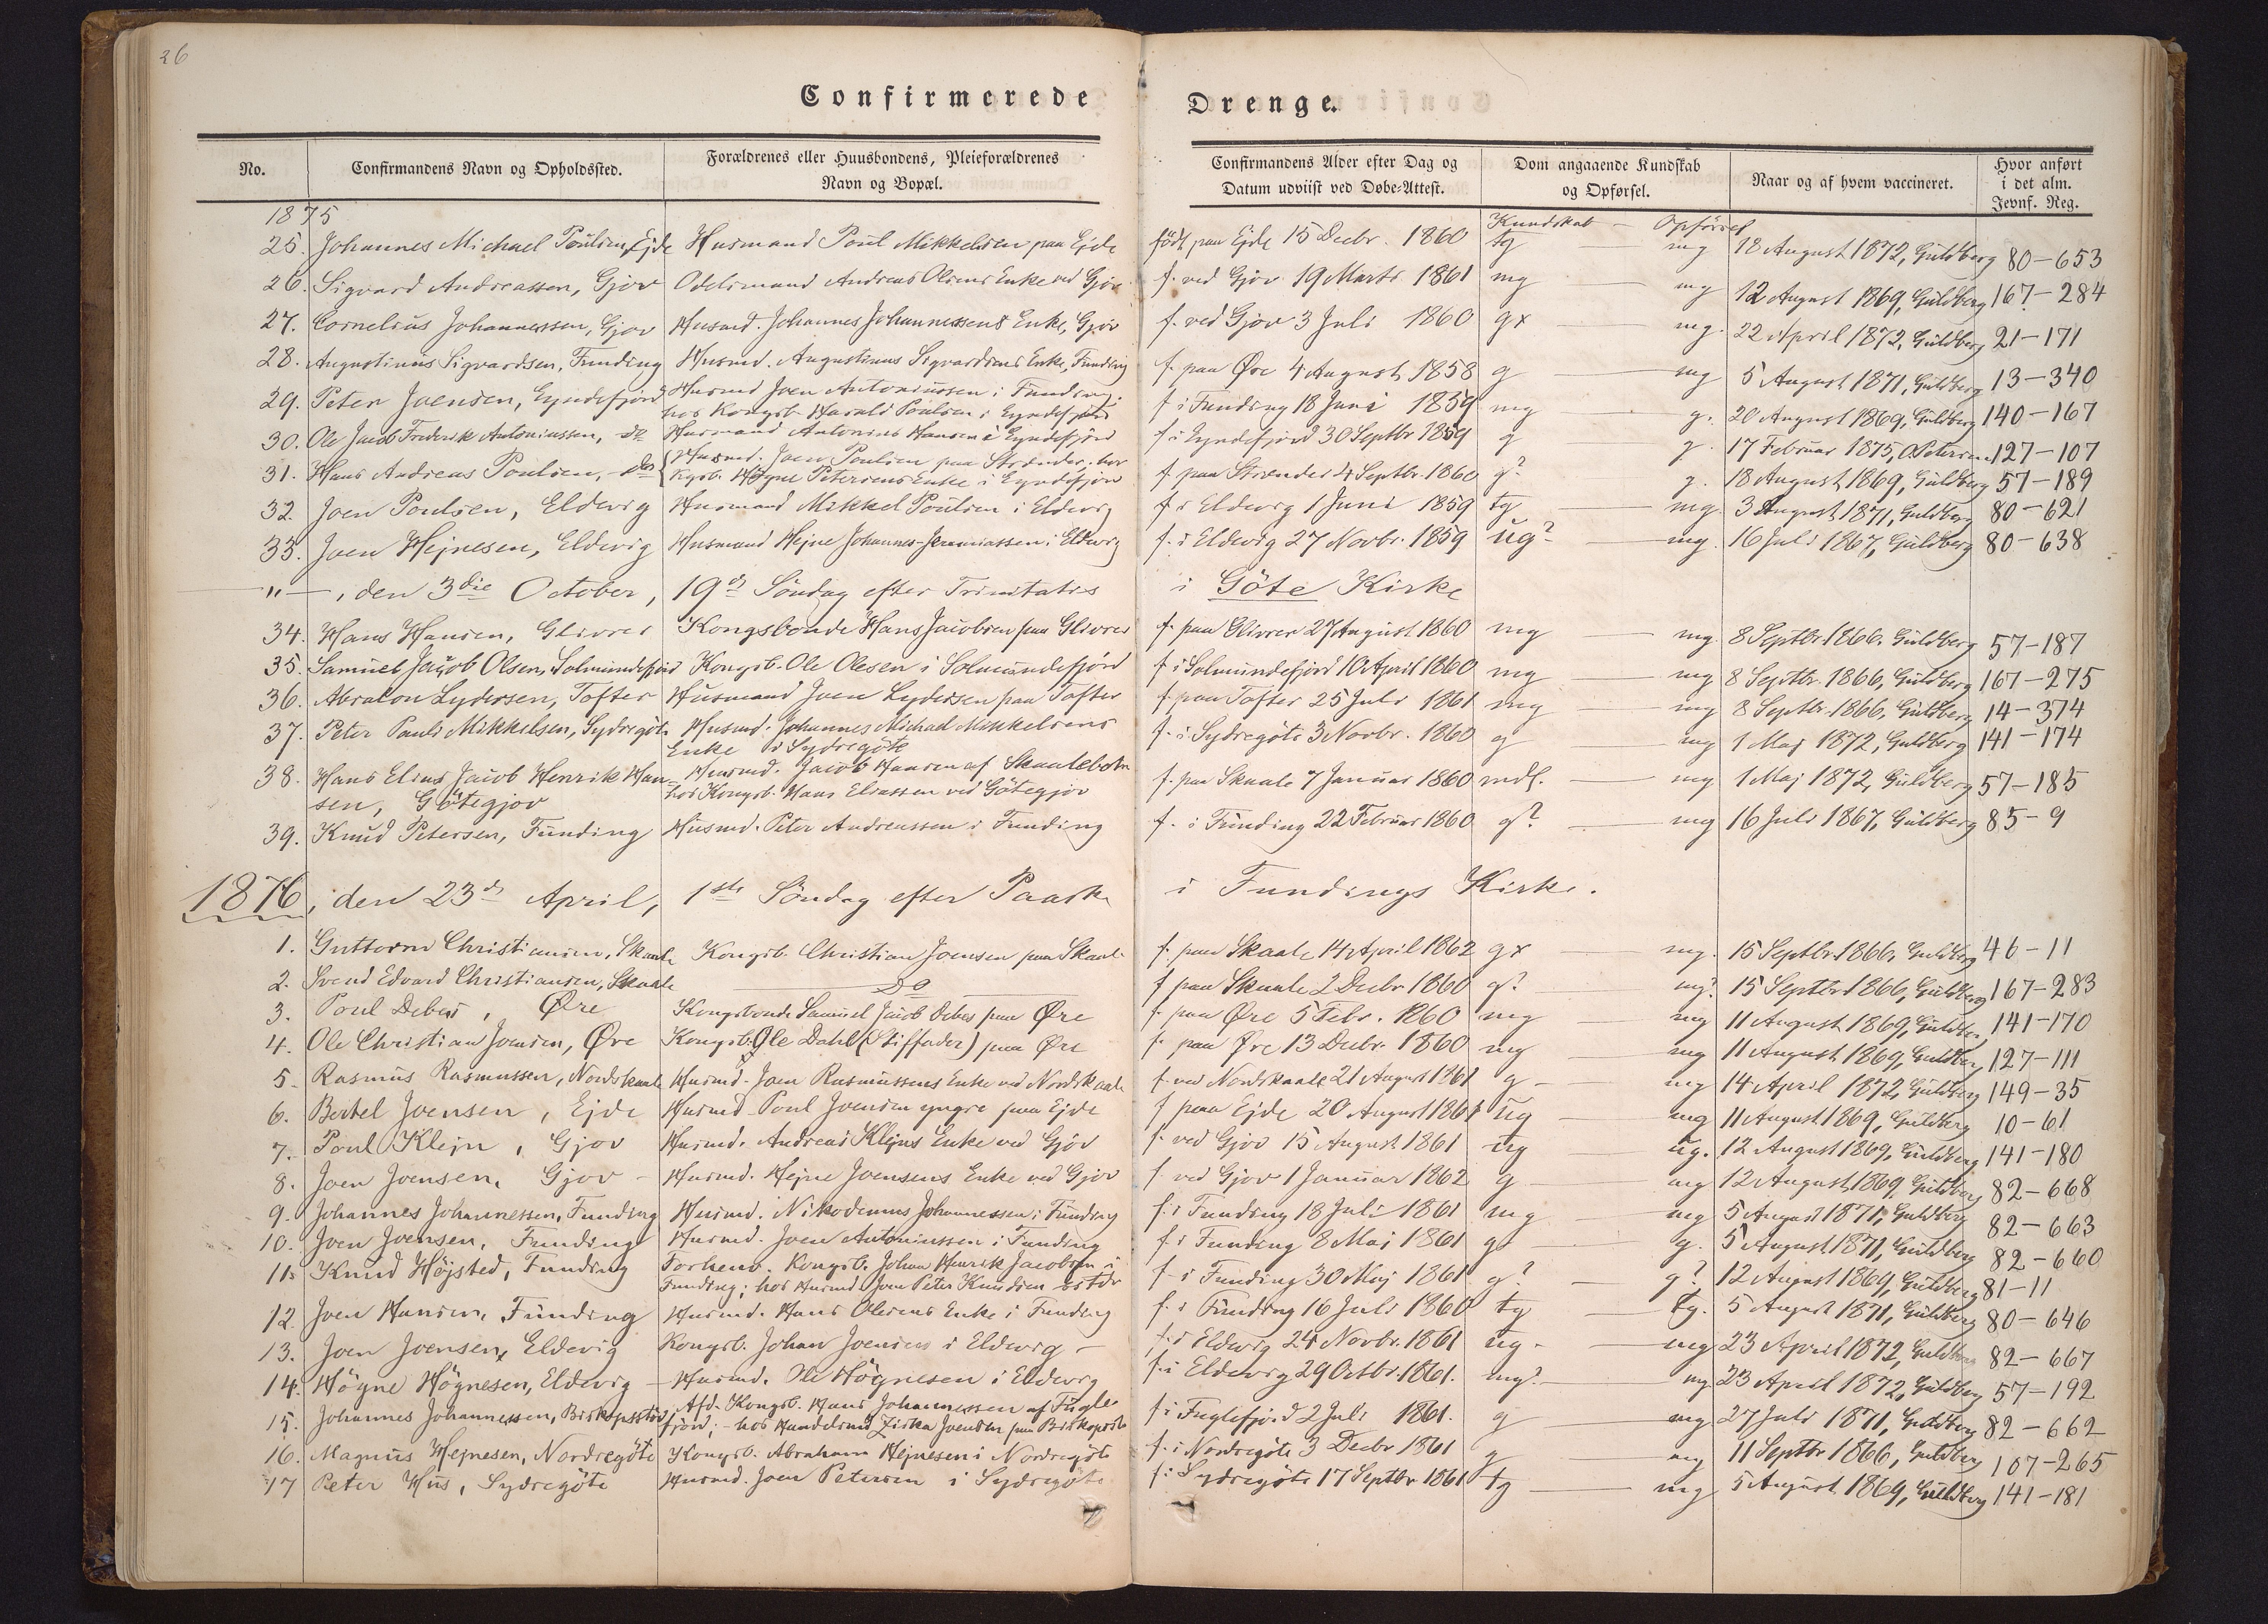 26
Confirmerede Drenge.
No. Confirmandens Navn og Opholdssted. Forældrenes eller Huusbondens, Pleieforældrenes Navn og Bopæl. Confirmandens Alder efter Dag og Datum udviist ved Døbe-Attest. Dom angaaende Kundskab og Opførsel. Naar og af hvem vaccineret. Hvor anført i det alm. Jevnf. Reg.
1875 Kundskab — Opförsel
25. Johannes Michael Poulsen, Ejde Husmand Poul Mikkelsen paa Ejde født paa Ejde 15 Decbr. 1860 tg — mg 18 August 1872, Guldberg 80-653
26. Sigvard Andreassen, Gjov Odelsmand Andreas Olsens Enke ved Gjov f. ved Gjov 19 Marts 1861 mg — mg 12 August 1869, Guldberg 167-284
27. Cornelius Johannessen, Gjov Husmd. Johannes Johannessens Enke, Gjov f. ved Gjov 3 Juli 1860 gx — mg. 22 April 1872, Guldberg 21-171
28. Augustinus Sigvardsen, Funding Husmd. Augustinus Sigvardsens Enke, Funding f. paa Øre 4 August 1858 g — mg 5 August 1871, Guldberg 13-340
29. Peter Joensen, Eyndefjord Husmd Joen Antoniussen i Funding. hos Kongsb. Harald Poulsen i Eyndefjord f i Funding 18 Juni 1859 mg — g. 20 August 1869, Guldberg 140-167
30. Ole Jacob Frederik Antoniussen, do Husmand Antonius Hansen i Eyndefjord f i Eyndefjord 30 Septbr 1859 g — g. 17 Februar 1875, O. Petersen 127-107
31. Hans Andreas Poulsen, do Husmd. Joen Poulsen paa Strænder, hos Kgsb. Högne Petersens Enke i Eyndefjord f paa Strænder 4 Septbr. 1860 g? — g. 18 August 1869, Guldberg 57-189
32. Joen Poulsen, Eldevig Husmand Mikkel Poulsen i Eldevig f i Eldevig 1 Juni 1859 tg — mg 3 August 1871, Guldberg 80-621
33. Joen Hejnesen, Eldevig Husmand Hejne Johannes-Jeremiassen i Eldevig f. i Eldevig 27 Novbr. 1859 ug? — mg. 16 Juli 1867, Guldberg 80-638
—"—, den 3die October, 19d Söndag efter Trinitatis i Göte Kirke
34. Hans Hansen, Glivrer Kongsbonde Hans Jacobsen paa Glivrer f. paa Glivrer 27 August 1860 mg — mg. 8 Septbr 1866. Guldberg 57-187
35. Samuel Jacob Olsen, Solmundefjord Kongsb. Ole Olesen i Solmundefjord f i Solmundefjord 10 April 1860 mg — mg 8 Septbr. 1866, Guldberg 167-275
36. Absalon Lydersen, Tofter Husmand Joen Lydersen paa Tofter f paa Tofter 25 Juli 1861 mg — mg 8 Septbr. 1866, Guldberg 14-374
37. Peter Pauli Mikkelsen, Sydregöte Husmd. Johannes Michael Mikkelsens Enke i Sydregöte f. i Sydregöte 3 Novbr. 1860 g — mg 1 Maj 1872, Guldberg 141-174
38. Hans Elias Jacob Henrik Han- Husmd. Jacob Hansen af Skaalebotn f. paa Skaale 7 Januar 1860 mdl. — mg 1 Maj 1872, Guldberg 57-185
sen, Götegjov hos Kongsb. Hans Eliassen ved Götegjov
39. Knud Petersen, Funding Husmd. Peter Andreassen i Funding f. i Funding 22 Februar 1860 g? — mg 16 Juli 1867, Guldberg 85-9
1876, den 23d April, 1ste Söndag efter Paaske i Fundings Kirke.
1. Guttorm Christiansen, Skaale Kongsb. Christian Joensen paa Skaale f. paa Skaale 14 April 1862 gx — mg. 15 Septbr 1866, Guldberg 46-11
2. Svend Edvard Christiansen, Skaale — Do — f paa Skaale 2 Decbr. 1860 g? — mg? 15 Septbr 1866, Guldberg 167-283
3. Poul Debes, Øre Kongsbonde Samuel Jacob Debes paa Øre f. paa Øre 5 Febr. 1860 mg — mg 11 August 1869, Guldberg, 141-170
4. Ole Christian Joensen, Øre Kongsb. Ole Dahl (Stiffader) paa Øre f. paa Øre 13 Decbr. 1860 mg — mg 11 August 1869, Guldberg, 127-111
5. Rasmus Rasmussen, Nordskaale Husmd. Joen Rasmussens Enke ved Nordskaale f. ved Nordskaale 21 August 1861 g — mg 14 April 1872, Guldberg 149-35
6. Bertel Joensen, Ejde Husmd Poul Joensen yngre paa Ejde f paa Ejde 20 August 1861 ug — mg 11 August 1869, Guldberg 10-61
7. Poul Klejn, Gjov Husmd. Andreas Klejns Enke ved Gjov f. ved Gjov 15 August 1861 ug — ug. 12 August 1869, Guldberg 141-180
8. Joen Joensen, Gjov Husmd. Hejne Joensens Enke ved Gjov f ved Gjov 1 Januar 1862 g — mg 12 August 1869, Guldberg 82-668
9. Johannes Johannessen, Funding Husmd. Nikodemus Johannessen i Funding f. i Funding 18 Juli 1861 mg — mg 5 August 1871, Guldberg 82-663
10. Joen Joensen, Funding Husmd. Joen Antoniussen i Funding f i Funding 8 Maj 1861 g — g. 5 August 1871, Guldberg 82-660
11. Knud Höjsted, Funding Forhenv. Kongsb. Johan Henrik Jacobsen i Funding; hos Husmd. Joen Peter Knudsen f. i Funding 30 Maj 1861 g? — g? 12 August 1869, Guldberg 81-11
12. Joen Hansen, Funding Husmd. Hans Olesens Enke i Funding f. i Funding 16 Juli 1860 tg — tg. 5 August 1871, Guldberg 80-646
13. Joen Joensen, Eldevig Kongsb. Johan Joensen i Eldevig f. i Eldevig 24 Novbr. 1861 ug — mg 23 April 1872, Guldberg 82-667
14. Högne Högnesen, Eldevig Husmd. Ole Högnesen i Eldevig f. i Eldevig 29 Octbr. 1861. mg? — mg 23 April 1872, Guldberg 57-192
15. Johannes Johannessen, Biskopsstöd Afd. Kongsb. Hans Johannessen af Fugle- fjord; - hos Handelsmd Ziska Joensen paa Biskopsstö f i Fuglefjord 2 Juli 1861. g — mg 27 Juli 1871, Guldberg 82-662
16. Magnus Hejnesen, Nordregöte Kongsb. Abraham Hejnesen i Nordregöte f. i Nordregöte 3 Decbr 1861 g — mg 11 Septbr 1866, Guldberg 107-265
17 Peter Hus, Sydregöte Husmd. Joen Petersen i Sydregöte f. i Sydregöte 17 Septbr 1861 tg — mg 5 August 1869, Guldberg 141-181